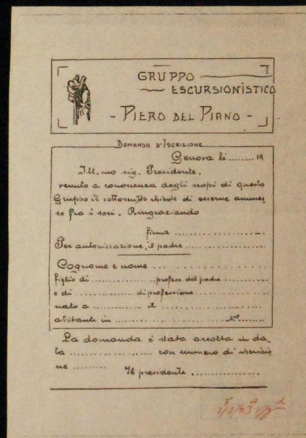 GRUPPO
ESCURSIONISTICO
- PIERO DEL PIANO -
DOMANDA D'ISCRIZIONE
Genova li ........ 19
Ill.mo sig. Presidente,
venuto a conoscenza degli scopi di questo
Gruppo il sottoscritto chiede di essere ammes
so fra i soci. Ringraziando
firma ...............
Per autorizzazione, il padre ...............
Cognome e nome ...............
figlio di ............... profess. del padre ...............
e di ............... di professione ...............
nato a ............... il ...............
abitante in ............... N° ......
La domanda è stata accolta in da
ta ............... con numero di iscrizio
ne ........ Il presidente ...............